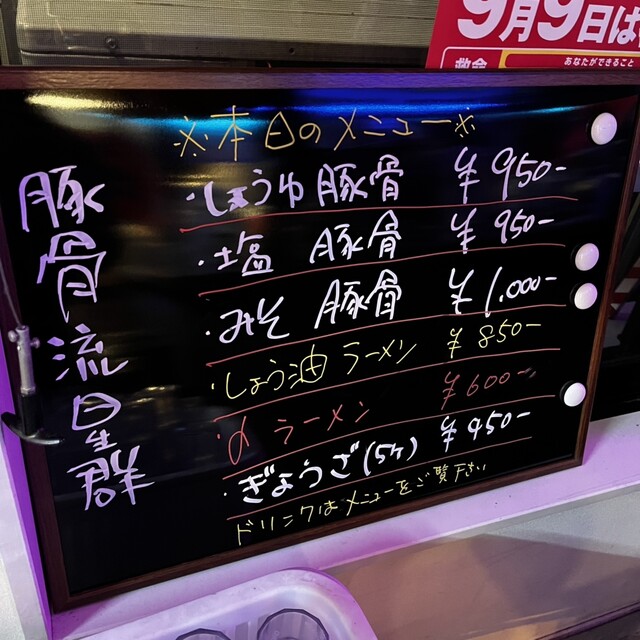 9月9日は
救急
あなたができること
※本日のメニュー※
豚骨流星群
・しょうゆ豚骨 ¥950-
・塩 豚骨 ¥950-
・みそ 豚骨 ¥1,000-
・しょう油ラーメン ¥850-
・〆ラーメン ¥600-
・ぎょうざ(5ヶ) ¥450-
ドリンクはメニューをご覧下さい